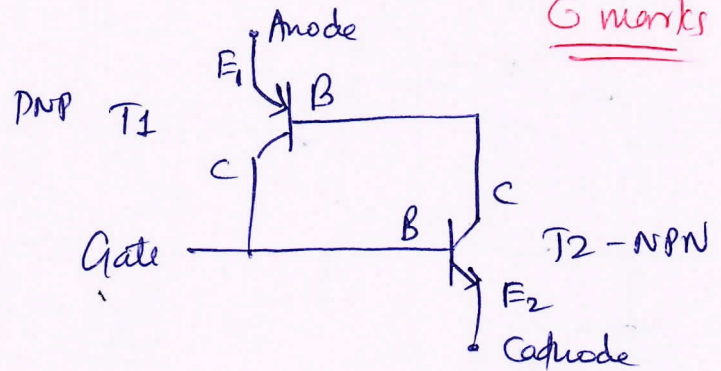 6 marks
Anode
E1
PNP T1
B
C
C
Gate
B
T2 - NPN
E2
Cathode